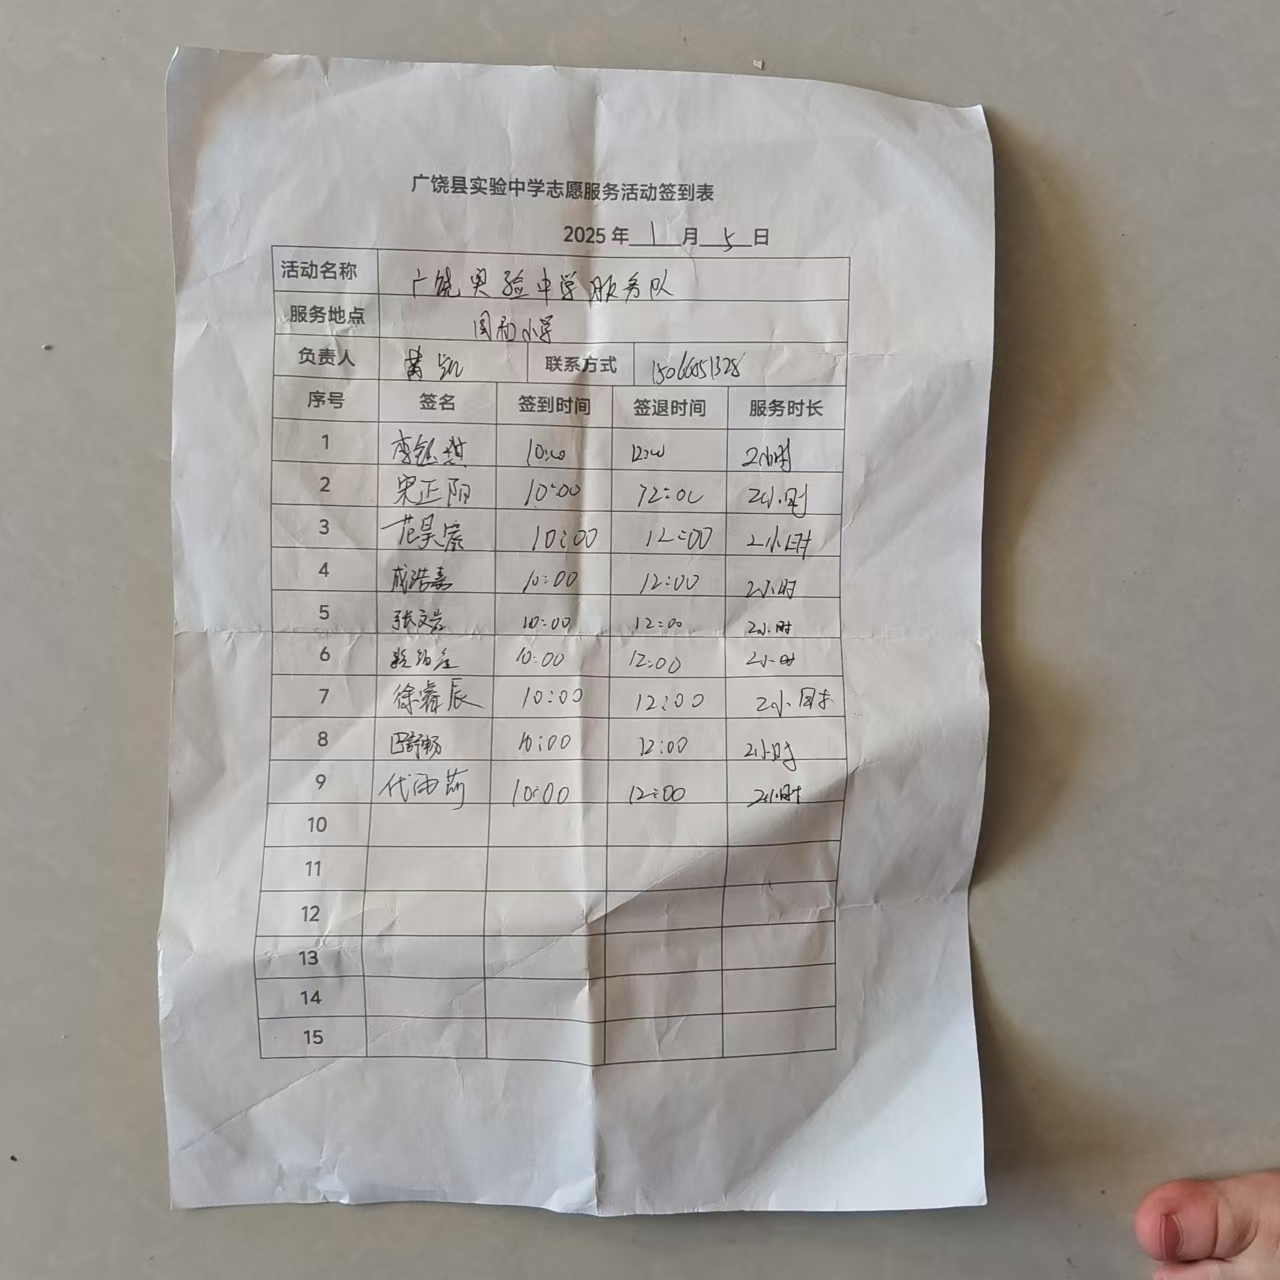 广饶县实验中学志愿服务活动签到表
2025 年 1 月 5 日
活动名称 广饶实验中学服务队
服务地点 小学
负责人 黄凯 联系方式
序号 签名 签到时间 签退时间 服务时长
1 10:00 12:00 2小时
2 宋正阳 10:00 12:00 2小时
3 范昊宸 10:00 12:00 2小时
4 成浩嘉 10:00 12:00 2小时
5 张文岩 10:00 12:00 2小时
6 10:00 12:00 2小时
7 徐睿辰 10:00 12:00 2小时
8 巴舒畅 10:00 12:00 2小时
9 代雨茹 10:00 12:00 2小时
10
11
12
13
14
15